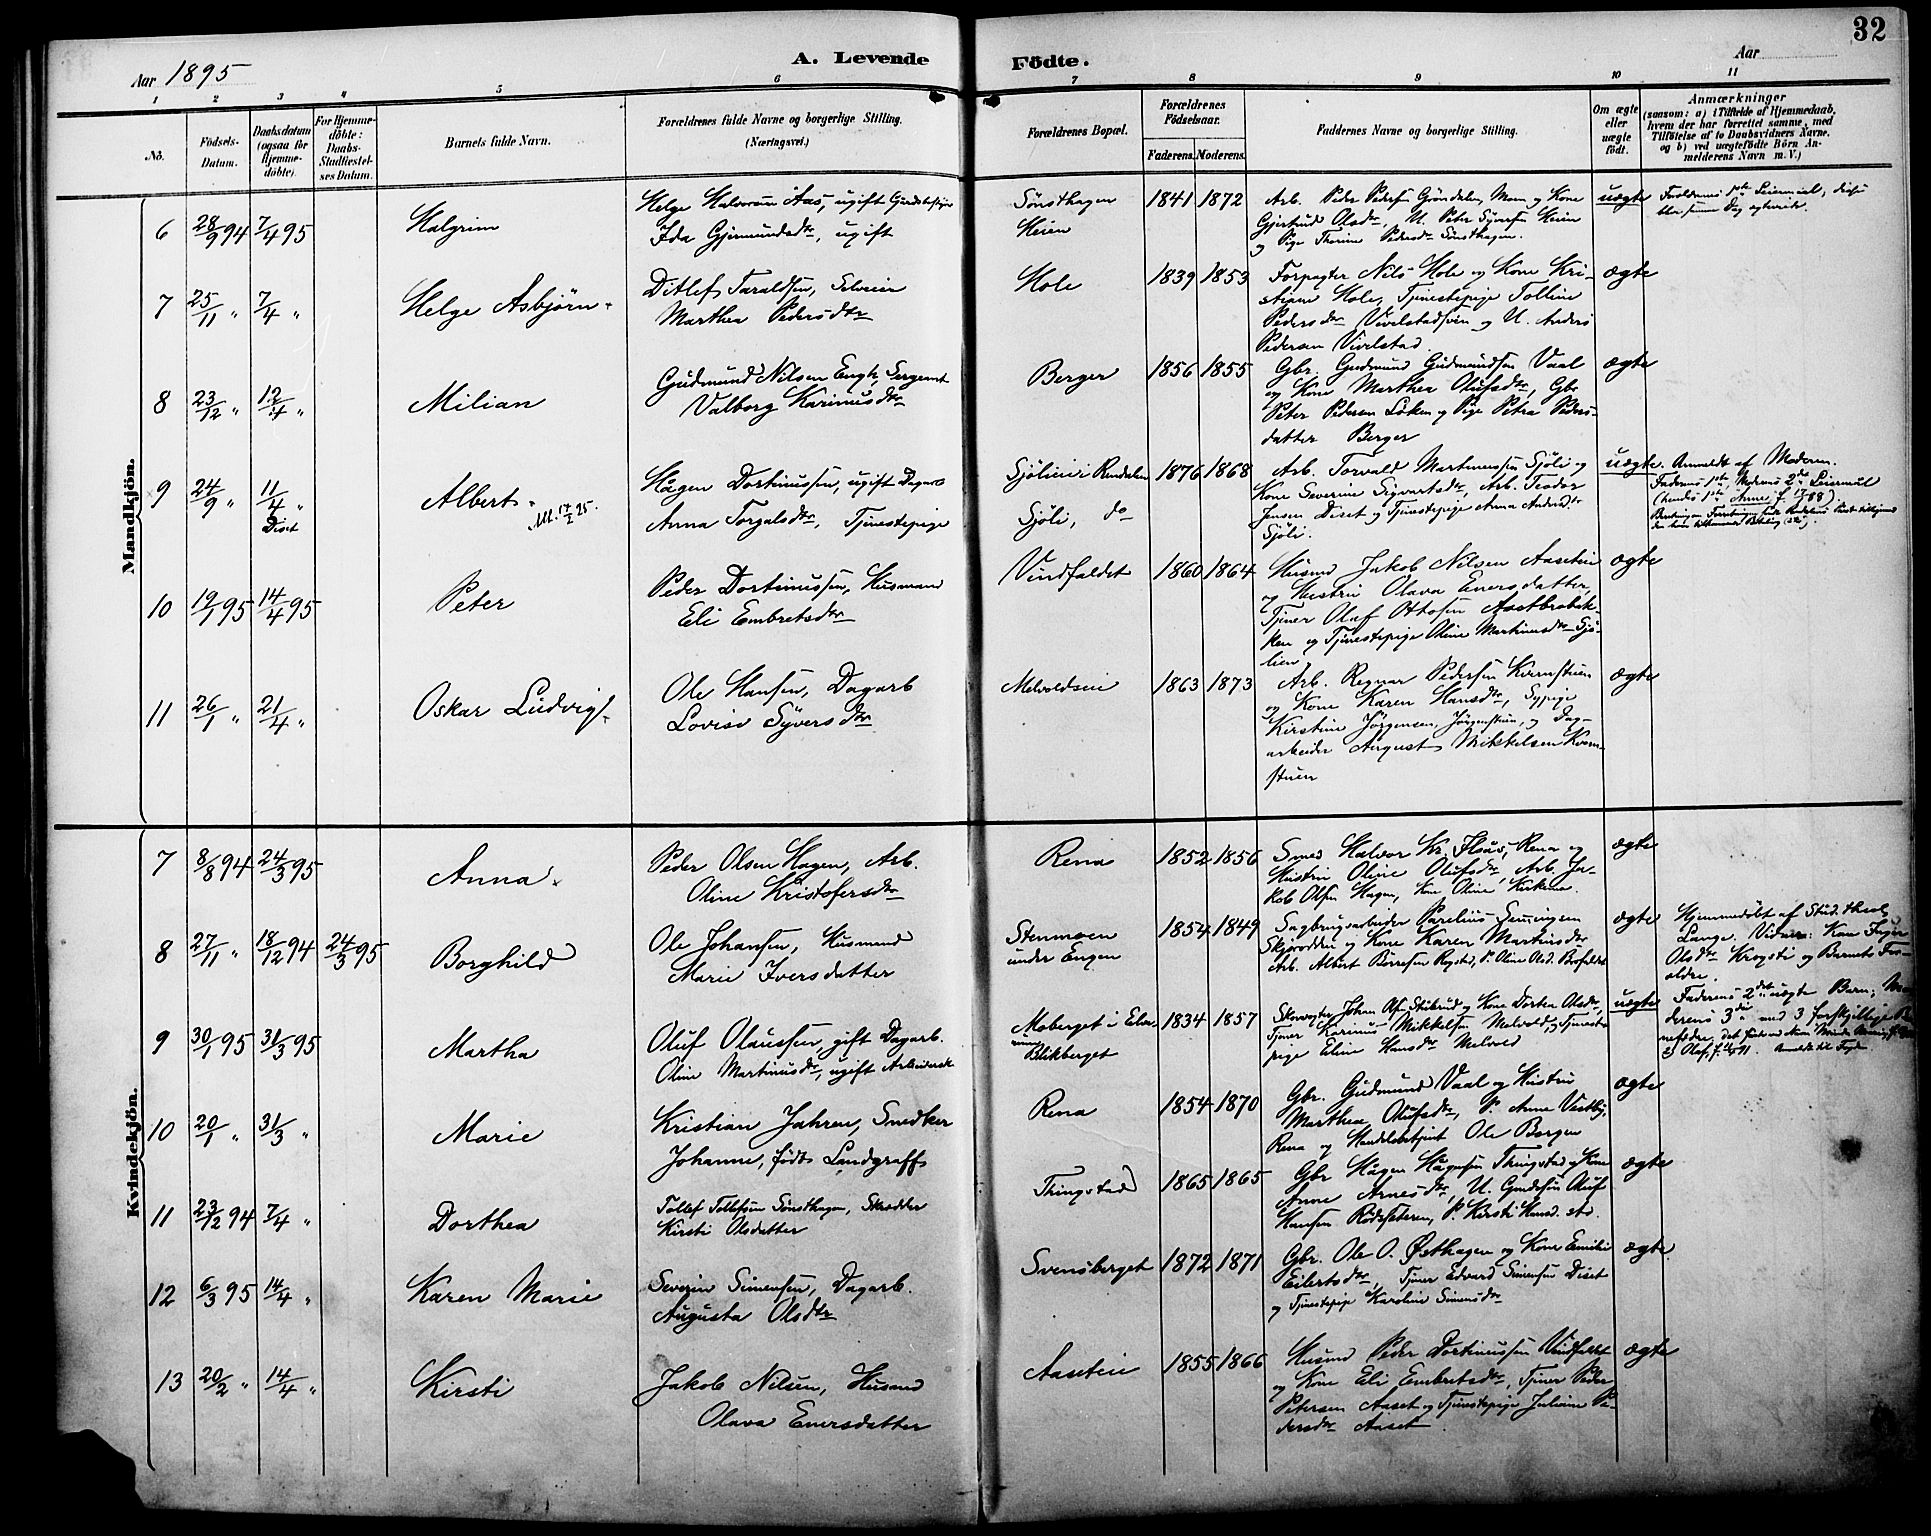 32
Aar 1895
A. Levende Födte.
Aar
1 2 3 4 5 6 7 8 9 10 11
No.
Födsels-
Datum.
Daabsdatum
(ogsaa for
Hjemme-
döbte).
For Hjemme-
döbte:
Daabs-
Stadfæstel-
ses Datum.
Barnets fulde Navn.
Forældrenes fulde Navne og borgerlige Stilling.
(Næringsvei.)
Forældrenes Bopæl.
Forældrenes
Födselsaar.
Faderens. Moderens.
Faddernes Navne og borgerlige Stilling.
Om ægte
eller
uægte
födt.
Anmærkninger
(saasom: a) i Tilfælde af Hjemmedaab,
hvem der har forrettet samme, med
Tilföielse af to Daabsvidners Navne,
og b) ved uægtefödte Börn An-
melderens Navn m. V.)
Mandkjön.
6 28/9 94 7/4 95 Halgrim
Helge Halvorsen Aas, ugift
Ida Gjermundsdtr, ugift
Sönsthagen
Heien
1841 1872
Arb. Peder Pedersen Gröndalen, Moen og Kone
Gjertrud Olsdtr, U. Peter Syversen Heien
og Pige Thorine Pedersdtr Sönsthagen.
uægte
7 25/11 " 7/4 " Helge Asbjörn
Ditlef Taraldsen, Selveier
Marthea Pedersdtr
Hole
1839 1853
Forpagter Nils Hole og Kone Kri-
stiane Hole, Tjenestepige Polline
Pedersdtr Vivelstadsven og U. Anders
Pedersen Vivelstad
ægte
8 23/12 " 12/4 " Milian
Gudmund Nilsen Engh, Sergent
Valborg Karinusdtr
Berger
1856 1855
Gbr. Gudmund Gudmundsen Vaal
og Kone Marthea Olufsdtr, Gbr.
Peter Pedersen Löken og Pige Petra Peders-
datter Berger
ægte
9 24/9 " 11/4 " Albert
Diset
Att. 17/2 25.
Hågen Dortinussen, ugift Dagarb
Anna Torgalsdtr, Tjenestepige
Sjölieie i Rendalen
Sjöli, do
1876 1868
Arb. Torvald Martinussen Sjöli og
Kone Severine Sigvartsdtr, Arb. Teodor
Jensen Diset og Tjenestepige Anna Andersdtr
Sjöli.
uægte. Anmeldt af Moderen.
Faderens 1ste, Moderens 2det Leiermål
10 19/1 95 14/4 95 Peter
Peder Dortinussen, Husmand
Eli Embretsdtr
Vindfaldet
1860 1864
Husmd Jakob Nilsen Aaseteie
og Hustru Olava Enersdatter,
Tjener Olaf Ottosen Aastbrobak-
ken og Tjenestepige Oline Martinusdtr Sjö-
lien
ægte
11 26/1 " 21/4 " Oskar Ludvig
Ole Hansen, Dagarb
Lovise Syversdtr
Melvoldseie
1863 1873
Arb. Regnar Pedersen Kvernstuen
og Kone Karen Hansdtr, Sypige
Kirstine Jörgensen, Jörgenstuen, og Dag-
arbeider August Mikkelsen Kvern-
stuen
ægte
Kvindekjön.
7 8/8 94 24/3 95 Anna
Peder Olsen Hagen, Arb.
Oline Kristofersdtr
Rena
1852 1856
Smed Halvor Kr. Floås, Rena og
Hustru Oline Olufsdtr, Arb. Ja-
kob Olsen Hagen, Kone Oline Kirkemo.
ægte
8 27/11 " 18/12 94 24/3 95 Borghild
Ole Johansen, Husmand
Marie Iversdatter
Stenmoen
under Engen
1854 1849
Sagbrugsarbeider Parelius Semmingsen
Skjærodden og Kone Karen Martinsdtr
Arb. Albert Börresen Rogstad, P. Oline Olsd. Brofaldet
ægte
Hjemmedöbt af Stud. theol.
Lange. Vidner: Kone Inger
Olsdtr Krogsti og Barnets For-
ældre.
9 30/1 95 31/3 95 Martha
Oluf Olaussen, gift Dagarb.
Oline Martinusdtr, ugift Arbeiderske
Moberget i Elve-
rum
Blikberget
1834 1857
Skovvogter Johan Olsen Stubrud og Kone Dortea Olsdtr,
Tjener Karinus Mikkelsen Melvold, og Tjeneste-
pige Eline Hansdtr Melvold
uægte
Faderens 2det uægte Barn; Mo-
derens 3die med 3 forskjellige Bar-
nefædre
10 20/1 " 31/3 " Marie
Kristian Jahren, Snedker
Johanne, födt Landgraff
Rena
1854 1870
Gbr. Gudmund Vaal og Hustru
Marthea Olufsdtr, P. Anne Vestby,
Rena og Handelsbetjent Ole Bergen
ægte
11 23/12 94 7/4 " Dorthea
Tollef Tollefsen Sönsthagen, Skrædder
Kirsti Olsdatter
Thingstad
1865 1865
Gbr Hågen Hågensen Thingstad og Kone
Anne Arnesdtr, U. Gundersen Oluf
Hansen Rödsæteren, P. Kirsti Hansd. sts.
ægte
12 6/3 95 14/4 " Karen Marie
Severin Simensen, Dagarb.
Augusta Olsdtr
Svensberget
1872 1871
Gbr. Ole O. Østhagen og Kone Emilie
Eilertsdtr, Tjener Edvard Simensen Diset
og Tjenestepige Karoline Simensdtr
ægte
13 20/2 " 14/4 " Kirsti
Jakob Nilsen, Husmd
Olava Enersdatter
Aaseteie
1855 1866
Husmd Peder Dortinussen Vindfaldet
og Kone Eli Embretsdtr, Tjener Peder
Petersen Aaset og Tjenestepige Juliane Pe-
dersdtr Aaset
ægte